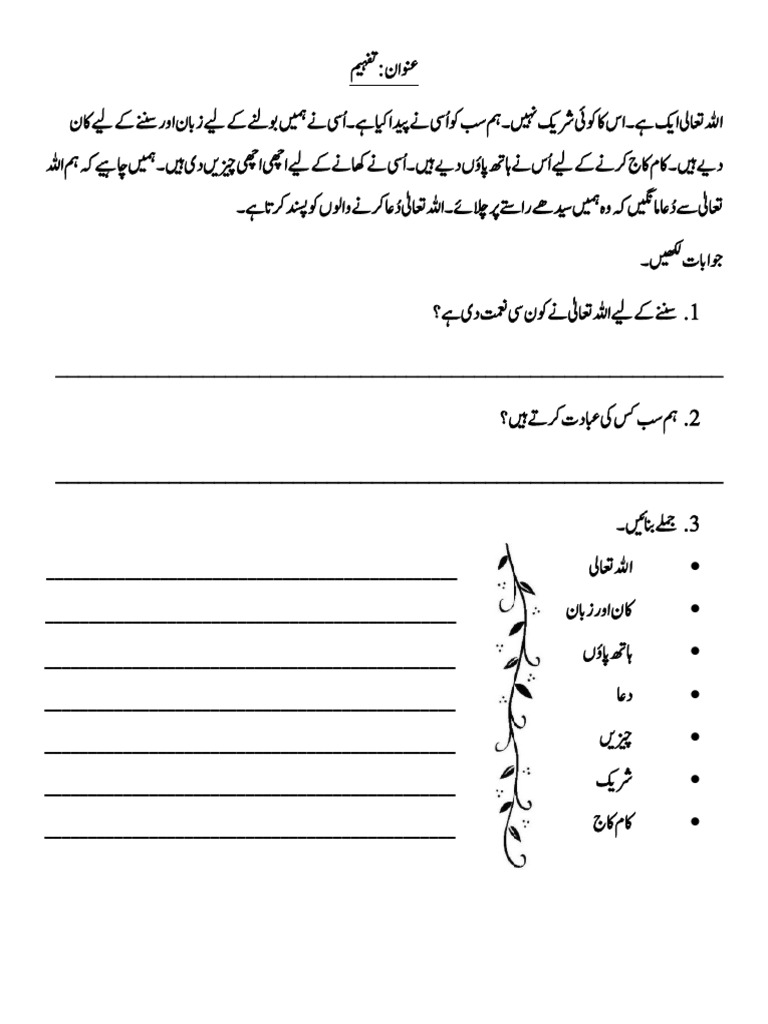 عنوان: تفہیم
اللہ تعالی ایک ہے۔ اس کا کوئی شریک نہیں۔ ہم سب کو اُسی نے پیدا کیا ہے۔ اُسی نے ہمیں بولنے کے لیے زبان اور سننے کے لیے کان
دیے ہیں۔ کام کاج کرنے کے لیے اُس نے ہاتھ پاؤں دیے ہیں۔ اُسی نے کھانے کے لیے اچھی اچھی چیزیں دی ہیں۔ ہمیں چاہیے کہ ہم اللہ
تعالٰی سے دُعا مانگیں کہ وہ ہمیں سیدھے راستے پر چلائے۔ اللہ تعالٰی دُعا کرنے والوں کو پسند کرتا ہے۔
جوابات لکھیں۔
1. سننے کے لیے اللہ تعالٰی نے کون سی نعمت دی ہے؟
2. ہم سب کس کی عبادت کرتے ہیں؟
3. جملے بنائیں۔
• اللہ تعالی
• کان اور زبان
• ہاتھ پاؤں
• دعا
• چیزیں
• شریک
• کام کاج